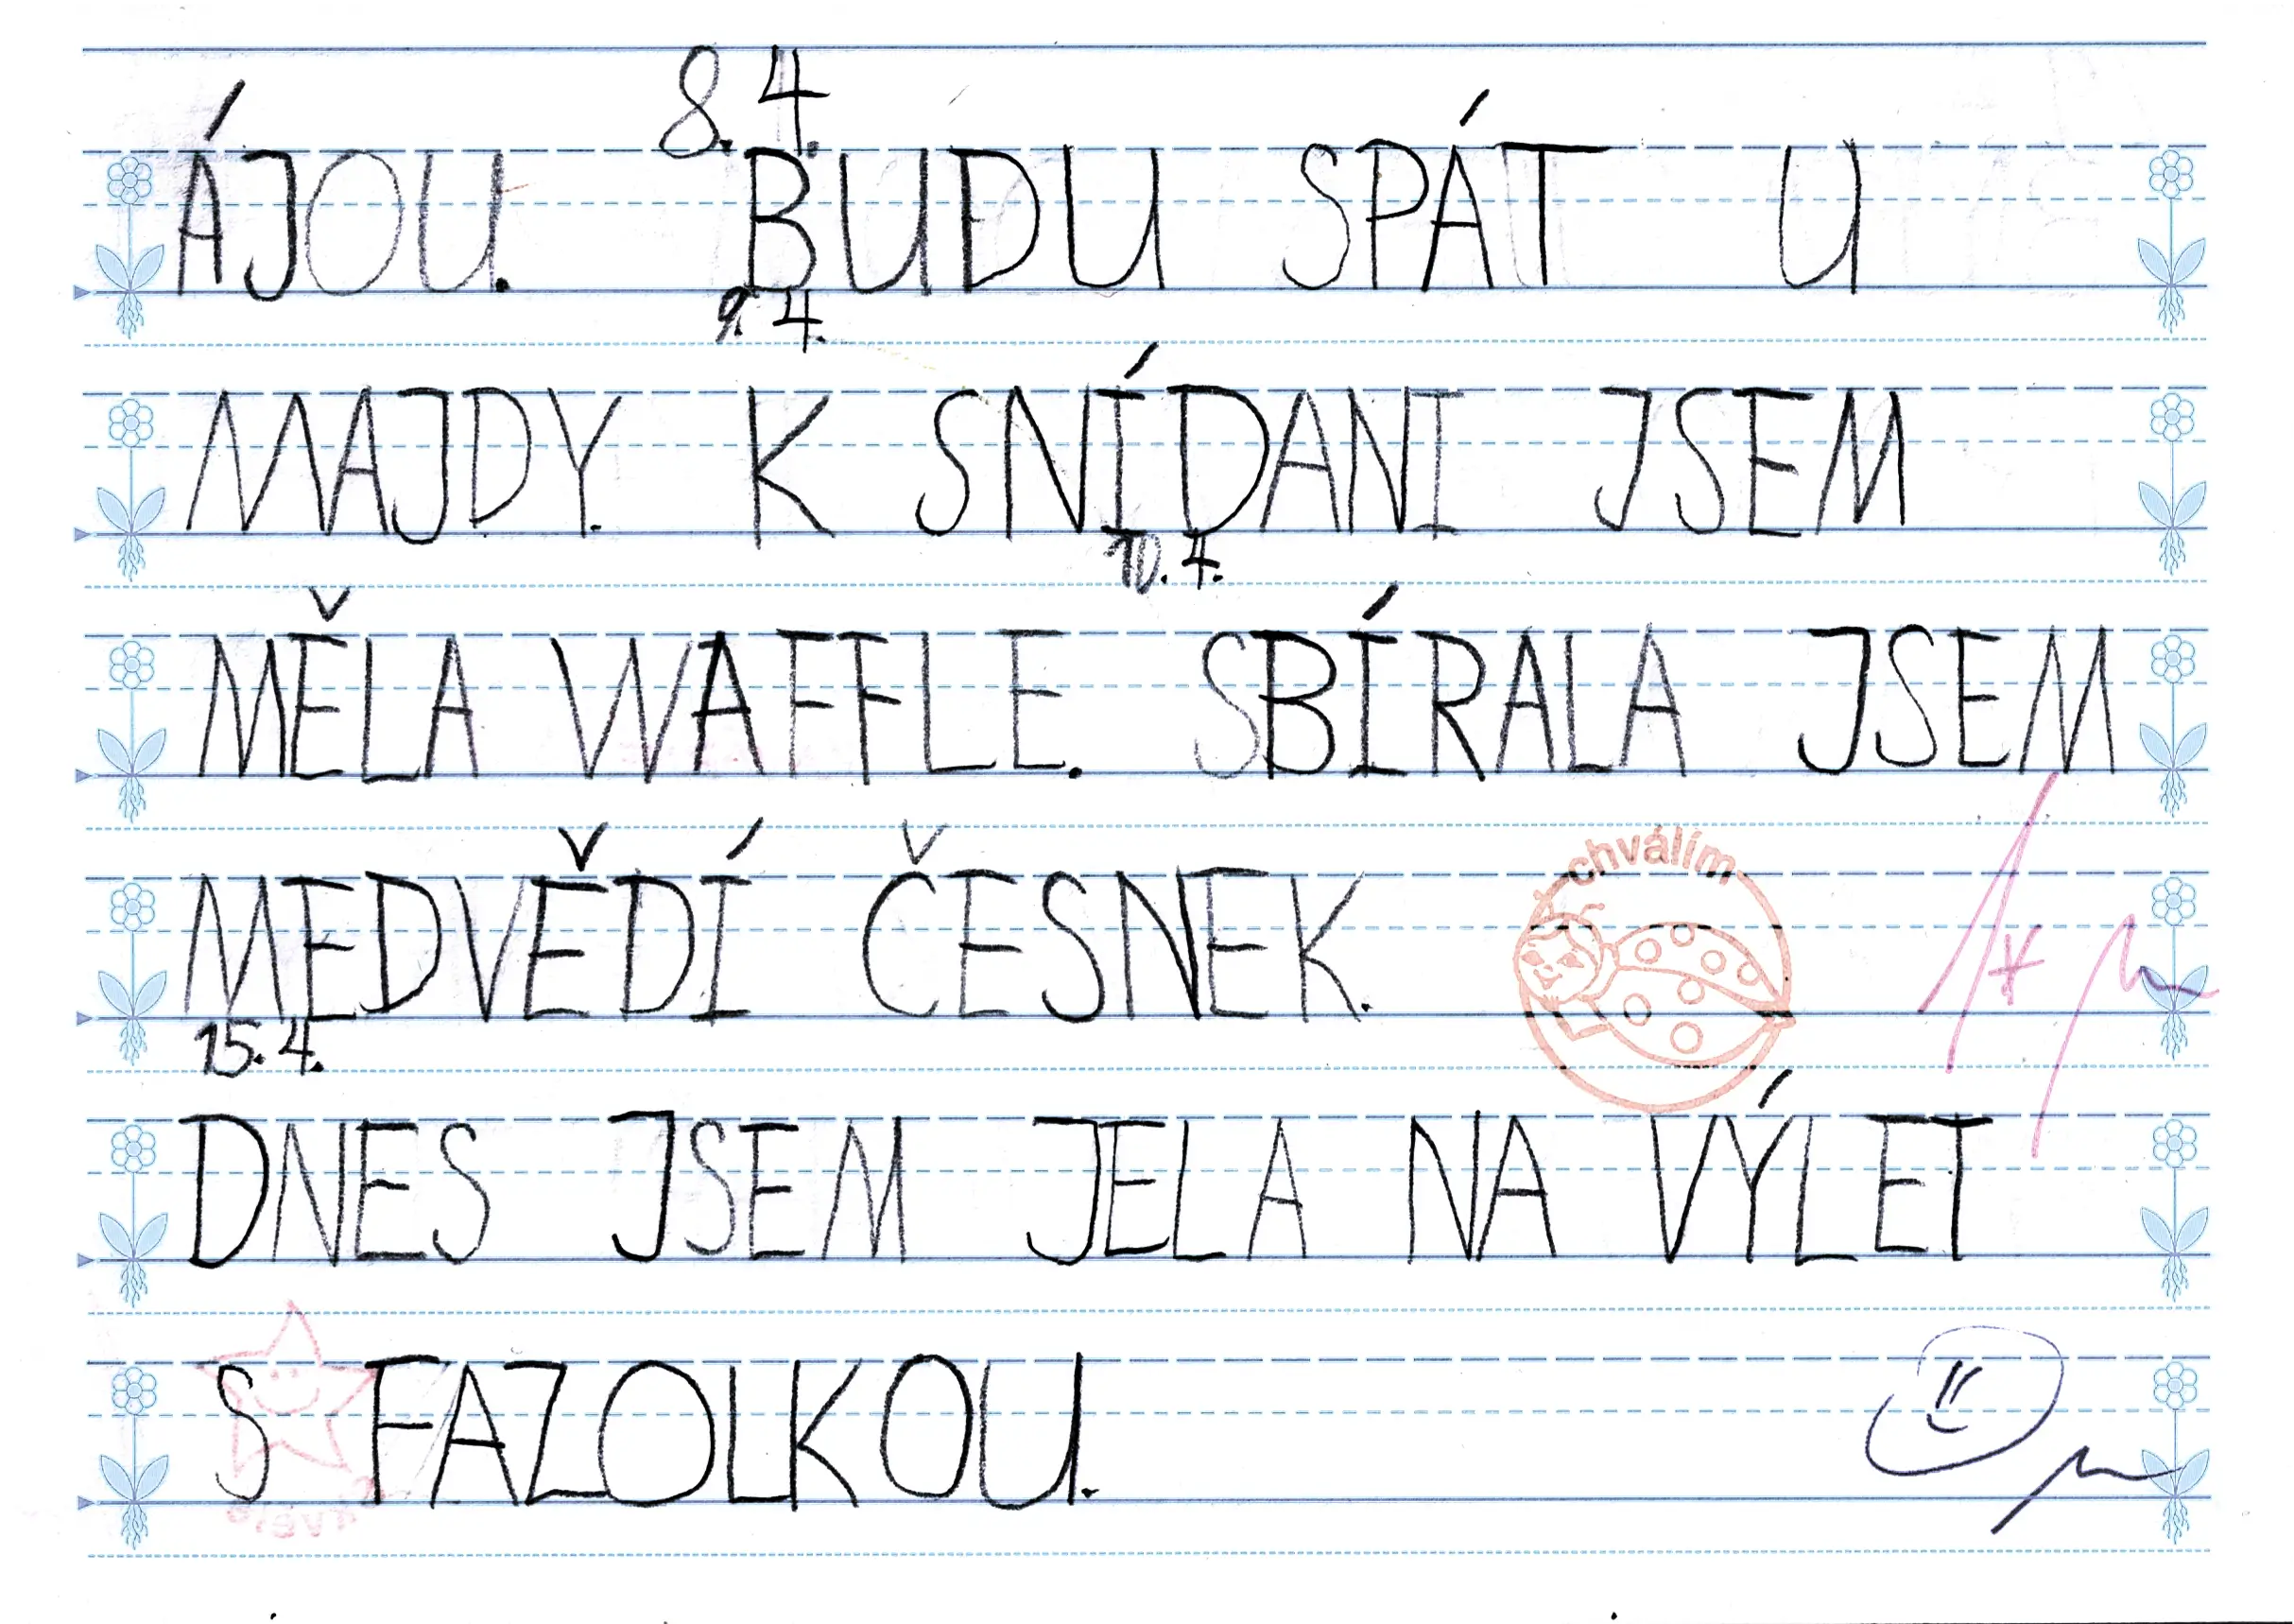 8. 4.
ÁJOU. BUDU SPÁT U
9. 4.
MAJDY. K SNÍDANI JSEM
10. 4.
MĚLA WAFFLE. SBÍRALA JSEM
MEDVĚDÍ ČESNEK.
chválím
1*
15. 4.
DNES JSEM JELA NA VÝLET
S FAZOLKOU.